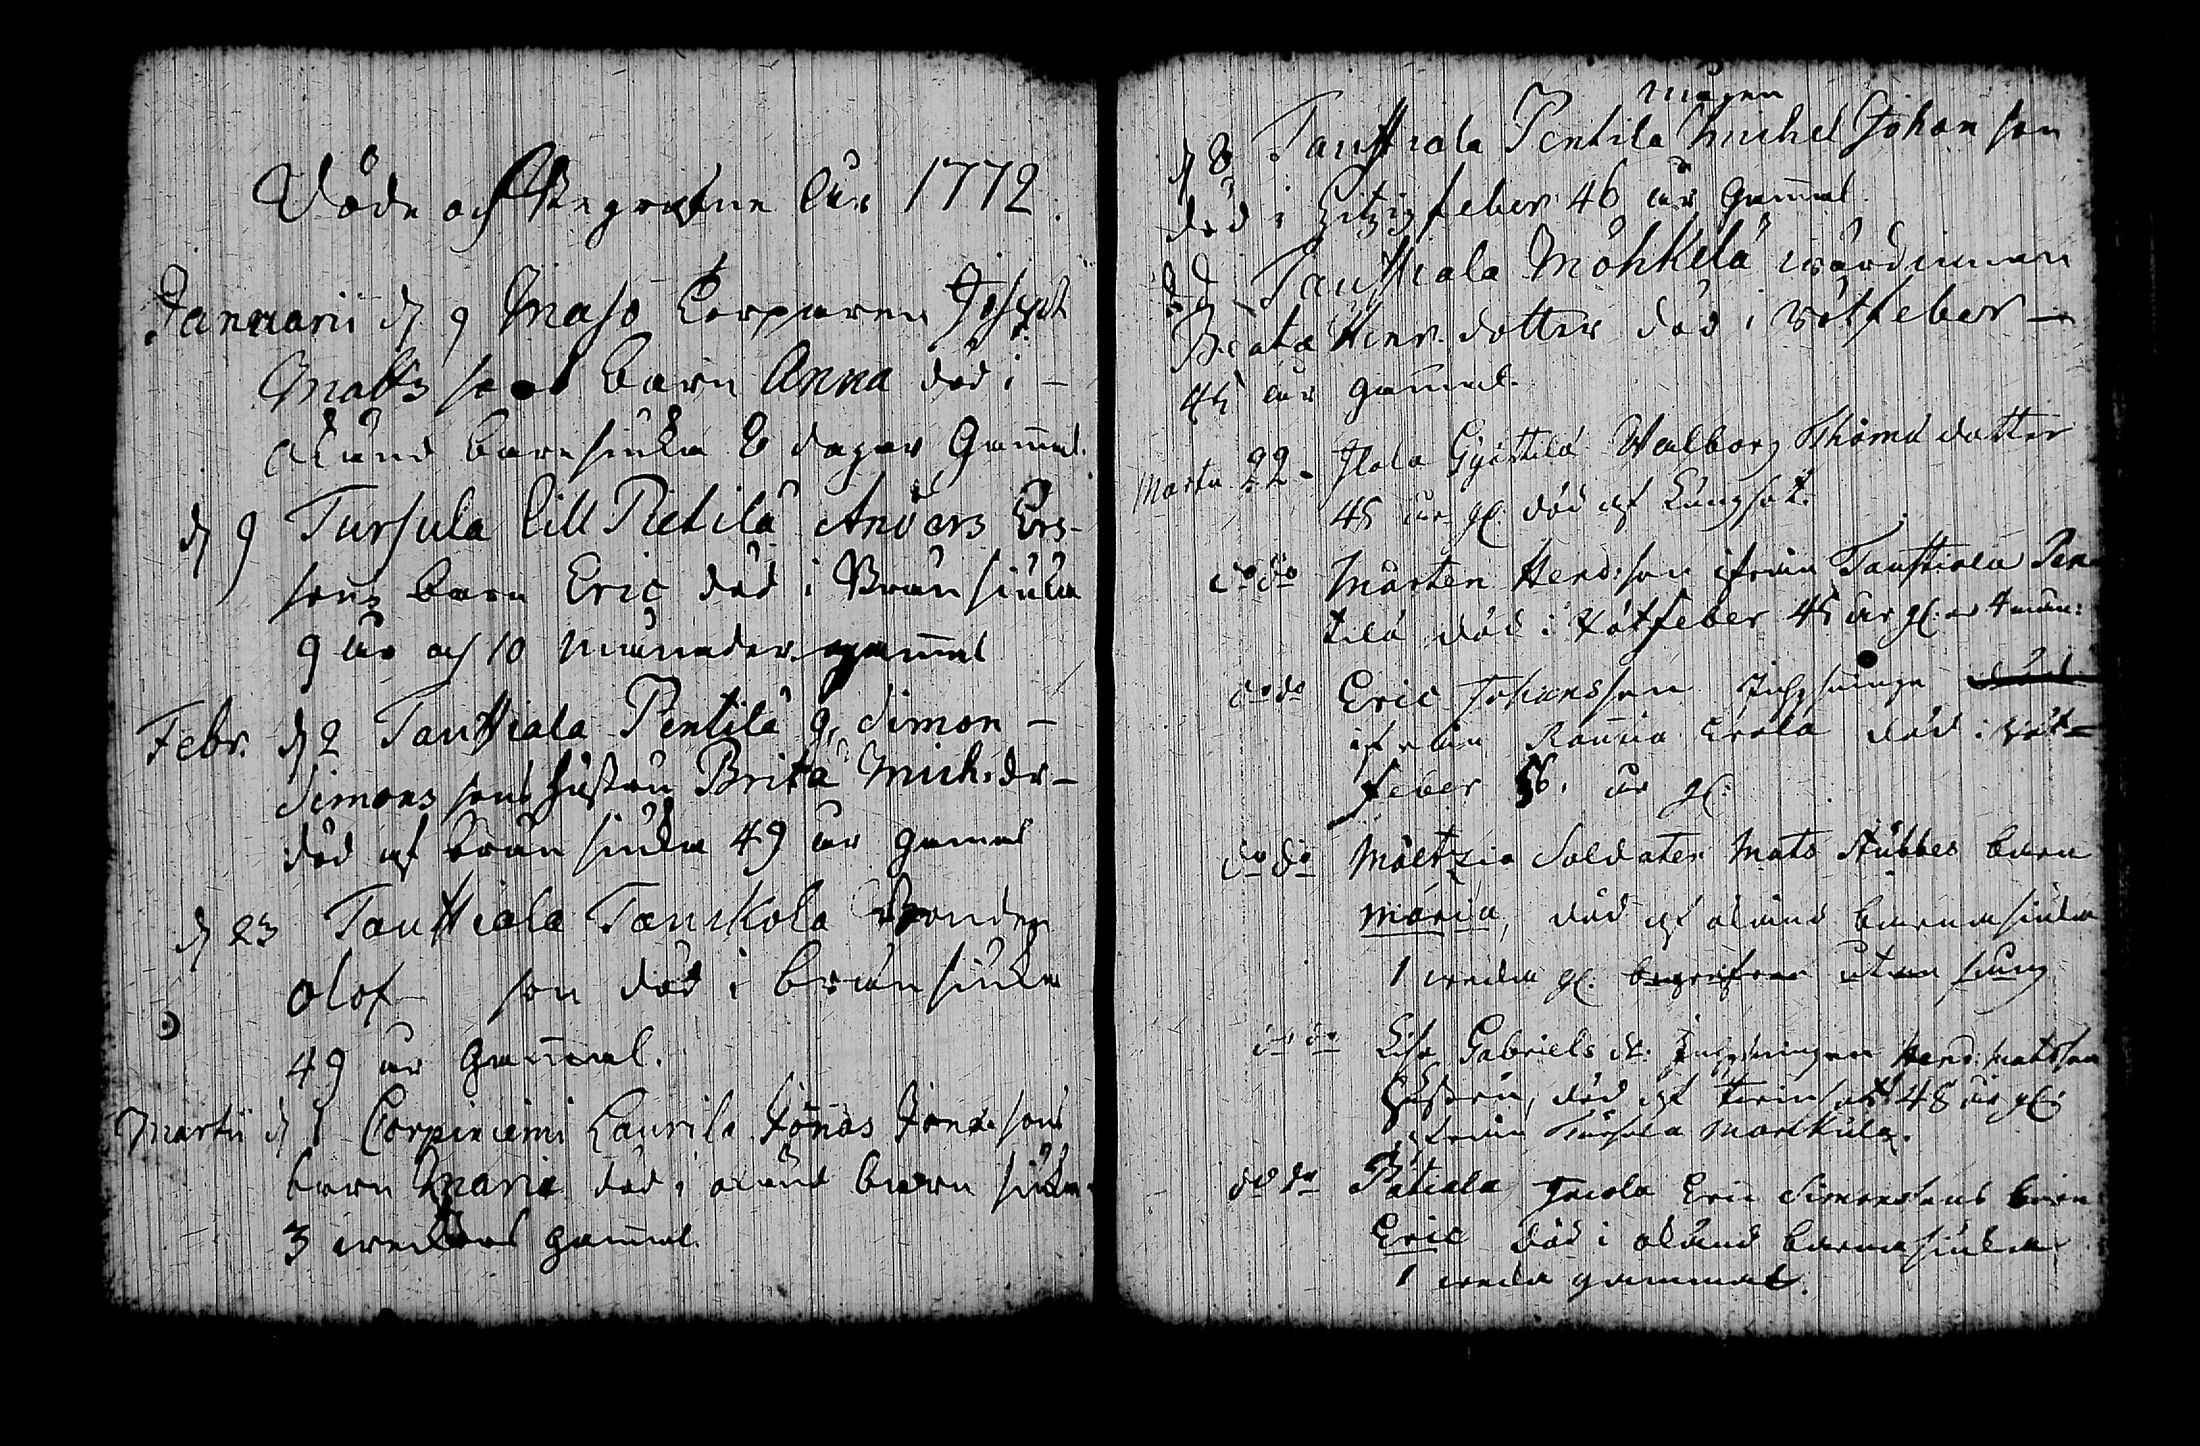 Döde och Begrafne Åhr 1772.
Januarii d. 9 Maso Corporen Joseph
Matts sons barn Anna död i -
okiend barnsiuka 8 dagar Gamal.
d 9 Tursula Lill Pietilä Anders Ers-
sons barn Eric död i Brånsiuka
9 år och 10 månader gammal
Febr. d 2 Tauttiala Pentilä g. Simon -
Simons sons hustru Brita Mich: dr -
död af brån siuka 49 år gamal
d 23 Tauttiala Tanskola Bonden
Olof son död i brånsiuka
49 år Gammal.
Martii d 1 Corpiniemi Laurila Jonas Jonæ sons
barn Maria död i okiend barn siuka
3 weckors gammal.
mågen
d 8 Tauttiala Pentila Michel Johan son
död i hitzig feber 46 år Gammal.
Tauttiala Möhkelä wärdinnan
Beata Henr. dotter död i rötfeber -
45 år gammal.
Martii 22 - Ilola Walborg Thomæ dotter
45 år gl. död af Lungsot.
do do Mårten Hend: son ifrån Tauttiala Pen-
tilä död i rötfeber 45 år gl. o 4 mån:
do do Eric Johansson Inhysinge
ifrån Erola död i röt-
feber 56. år gl.
do do Soldaten Mats Stubbes barn
Maria, död af okiänd barnasiuka
1 wecka gl. begrafven utan sång
do do Lisa Gabriels dr. Inhysingen Hend: Matsson
Hustru, död af 48 år gl:
ifrån Tursula Markula.
do do Pätiala Eric Simonssons barn
Eric död i okänd barnasiuka
1 wecka gammal.